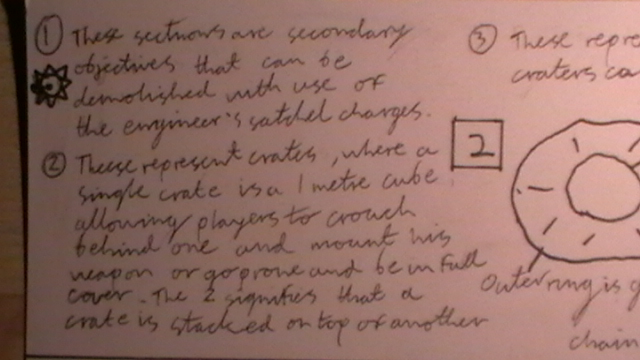 ① These sections are secondary
objectives that can be
demolished with use of
the engineer's satchel charges.
② These represent crates, where a
single crate is a 1 metre cube
allowing players to crouch
behind one and mount his
weapon or go prone and be in full
cover. The 2 signifies that a
crate is stacked on top of another
2
③ These repre
craters ca
Outer ring is g
chain